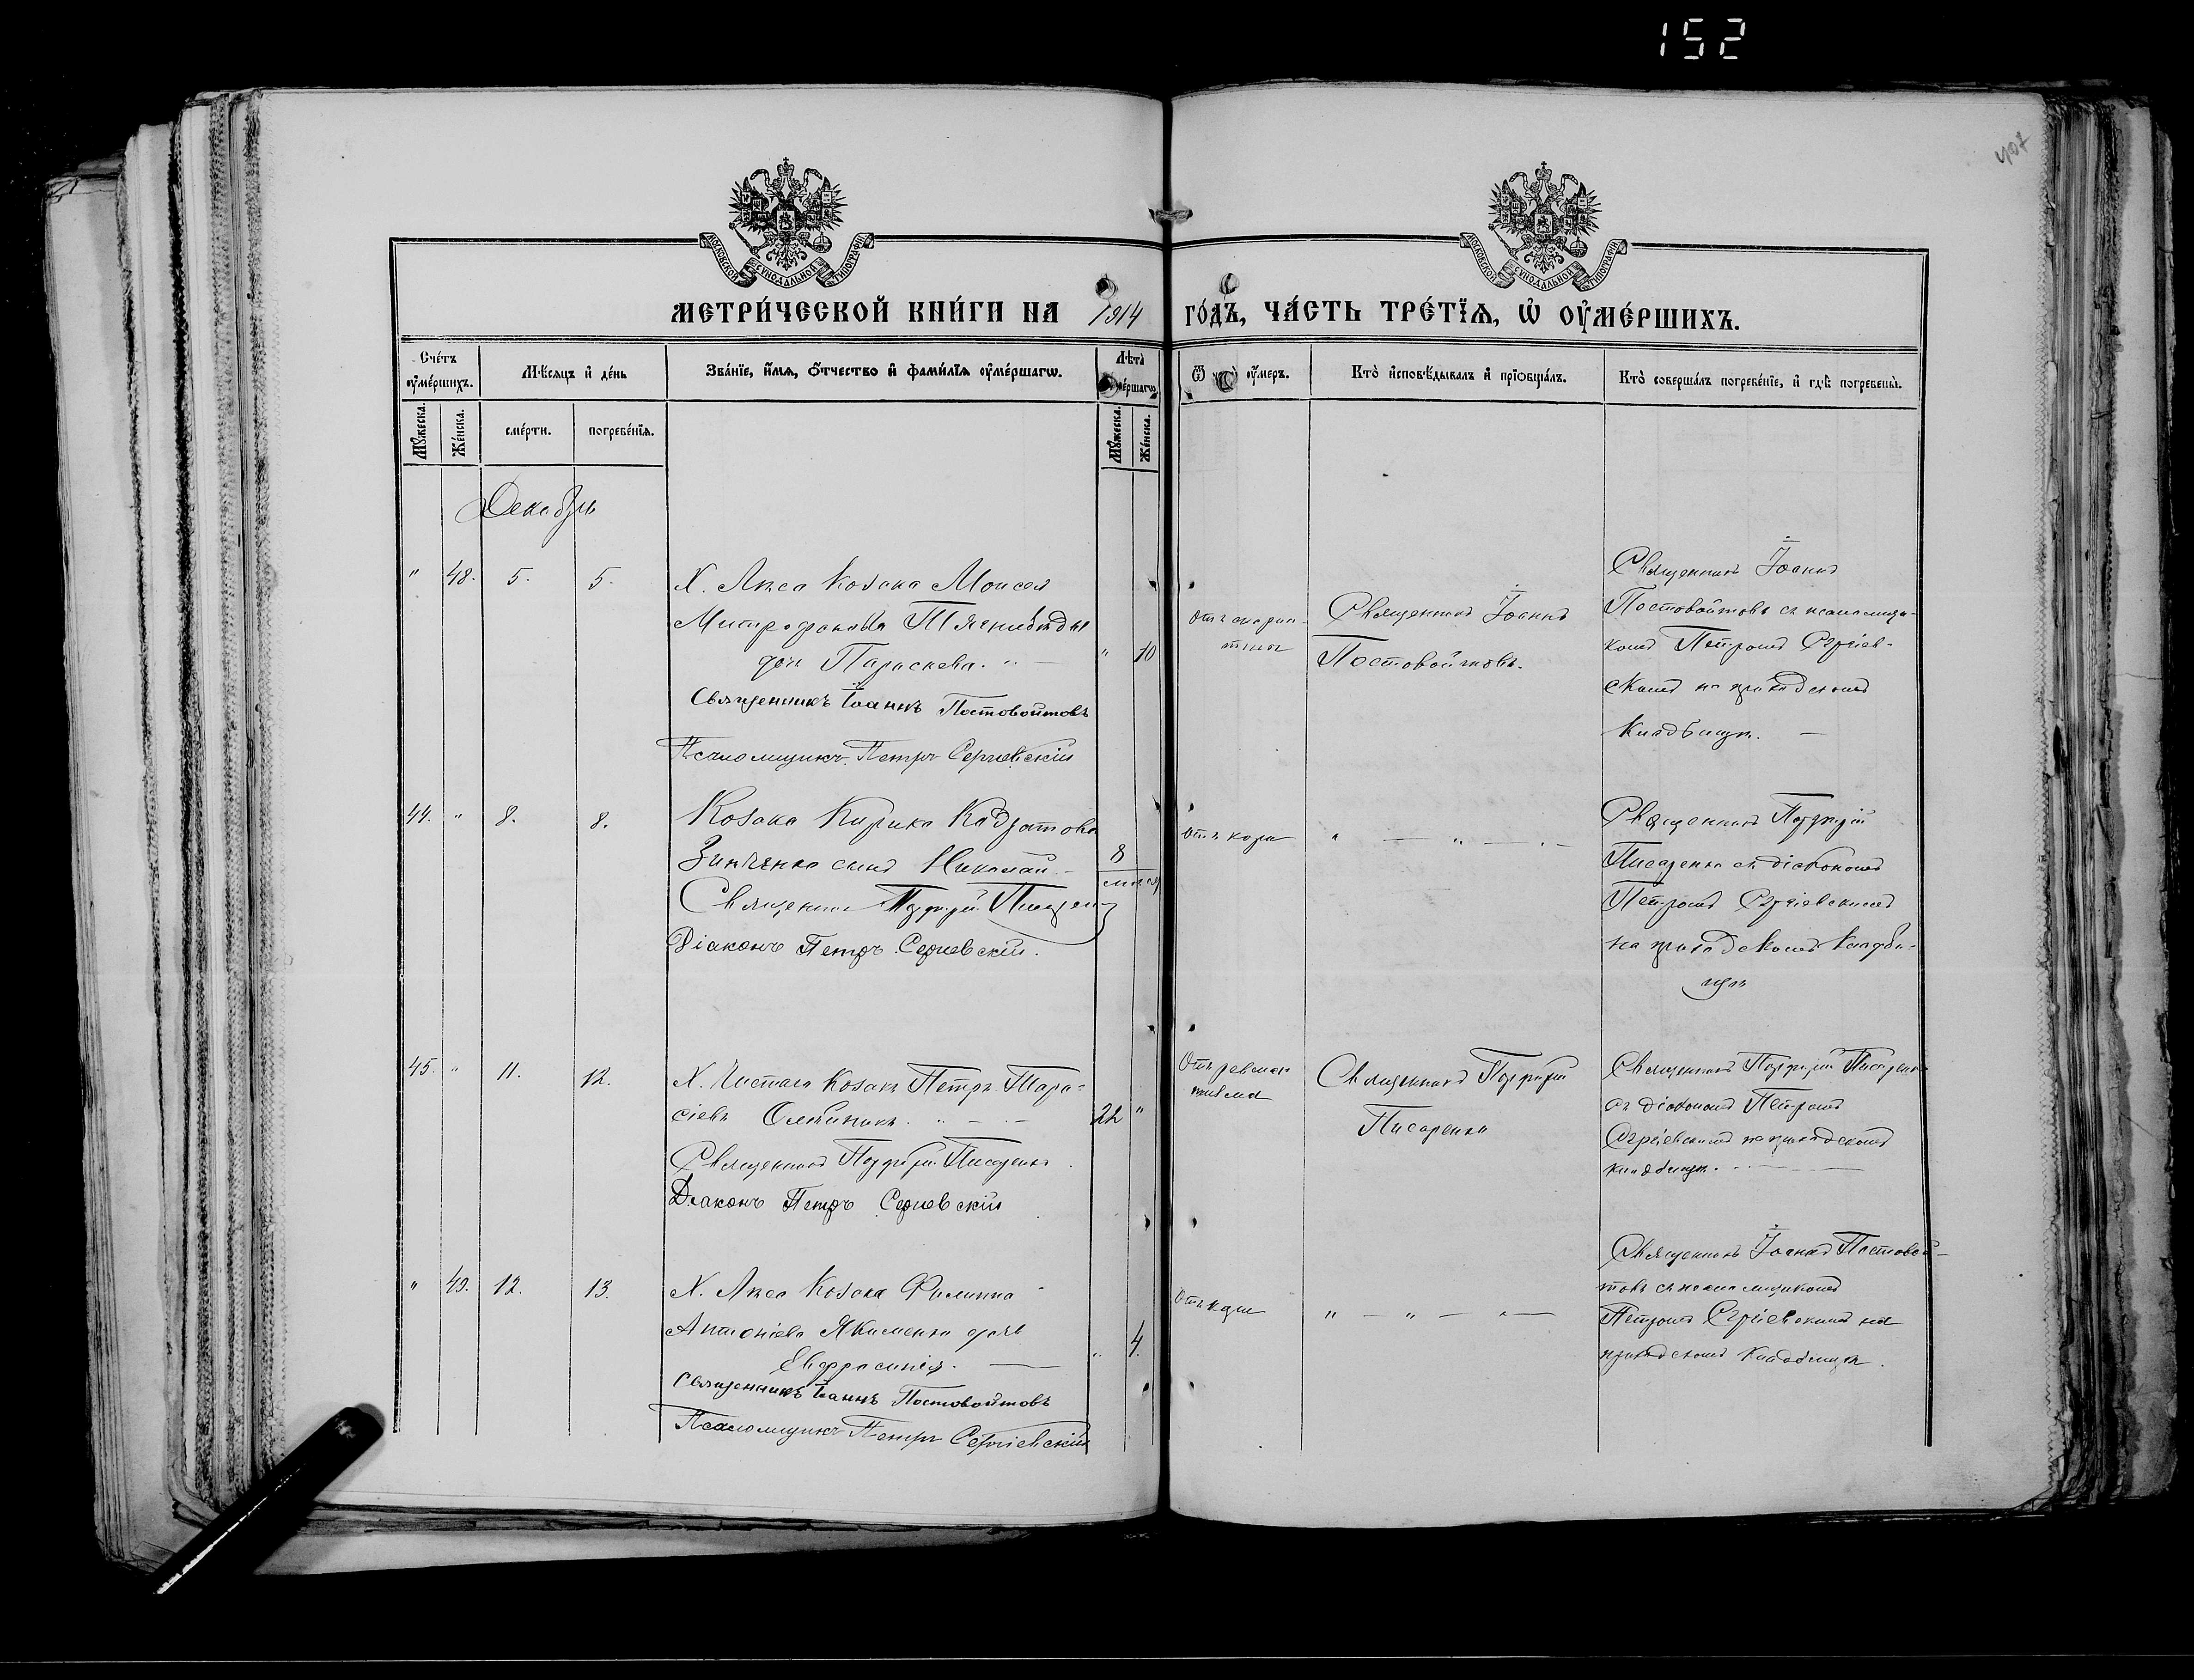 152
407
МОСКОВСКОЙ СУНОДАЛЬНОЙ ТИПОГРАФІИ
МОСКОВСКОЙ СУНОДАЛЬНОЙ ТИПОГРАФІИ
МЕТРИ́ЧЕСКОЙ КНИ́ГИ НА 1914 ГО́ДЪ, ЧА́СТЬ ТРЕ́ТЇѦ, Ѽ ОУМЕ́РШИХЪ.
Сче́тъ оумершихъ.
Мѣсяцъ и де́нь
Зва́нїе, и́мѧ, ѻ҆́тчество и фами́лїѧ оуме́ршагѡ.
Лѣта
Ѿ оу́меръ.
Кто̀ и҆сповѣ́дывалъ и҆ прїѡбща́лъ.
Кто̀ соверша́лъ погребе́нїе, и҆ гдѣ̀ погребены̀.
Мужеска.
Же́нска.
сме́рти.
погребе́нїѧ.
Мужеска.
Же́нска.
Декабрь
" 48. 5. 5.
Х. Лѣса козака Моисея
Митрофанова
дочь Параскева. " —
" 10
Священникъ Іоаннъ Постовойтовъ
Псаломщикъ Петръ Сергіевскій
Отъ скарла-
тины
Священникъ Іоаннъ
Постовойтовъ.
Священникъ Іоаннъ
Постовойтовъ съ псаломщи-
комъ Петромъ Сергіев-
скимъ на приходскомъ
кладбищѣ. —
44. " 8. 8.
Козака Кирика Кодратова
Зинченко сынъ Николай —
8
мѣсяц
Священникъ Порфирій Писаренко
Діаконъ Петръ Сергіевскій.
Отъ кори
" — " — " —
Священникъ Порфирій
Писаренко съ діакономъ
Петромъ Сергіевскимъ
на приходскомъ кладби-
щѣ
45. " 11. 12.
Х. козакъ Петръ Тара-
сіевъ Олейникъ. " — " —
22 "
Священникъ Порфирій Писаренко
Діаконъ Петръ Сергіевскій
Отъ ревма
тизма
Священникъ Порфирій
Писаренко
Священникъ Порфирій Писаренко
съ діакономъ Петромъ
Сергіевскимъ на приходскомъ
кладбищѣ. —
" 49. 12. 13.
Х. Лѣса козака Филиппа
Антоніева Якименко дочь
Евфросинія. —
" 4.
Священникъ Іоаннъ Постовойтовъ
Псаломщикъ Петръ Сергіевскій
" — " — " —
Священникъ Іоаннъ Постовой-
товъ съ псаломщикомъ
Петромъ Сергіевскимъ на
приходскомъ кладбищѣ.